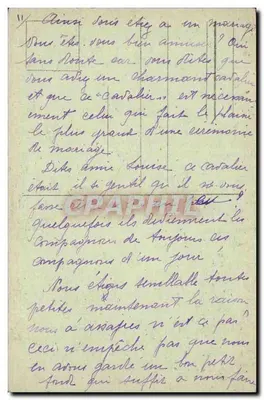 Ainsi vous étiez a un mariage
Vous êtes vous bien amusée? Oui
sans doute car vous dites que
vous aviez un charmant cavalier
et que ce "cavalier" est nécessai
rement celui qui fait le plaisir
le plus grand d'une ceremonie
de mariage.
Dites amie Louise ce cavalier
était il si gentil qu'il
CPARAMA
quelquefois ils deviennent les
compagnons de toujours ces
compagnons d'un jour
Nous étions semblable toutes
petites maintenant la raison
nous a n'est ce pas?
Ceci n'empêche pas que nous
en avons garde un bon petit
fond qui suffit a nous faire